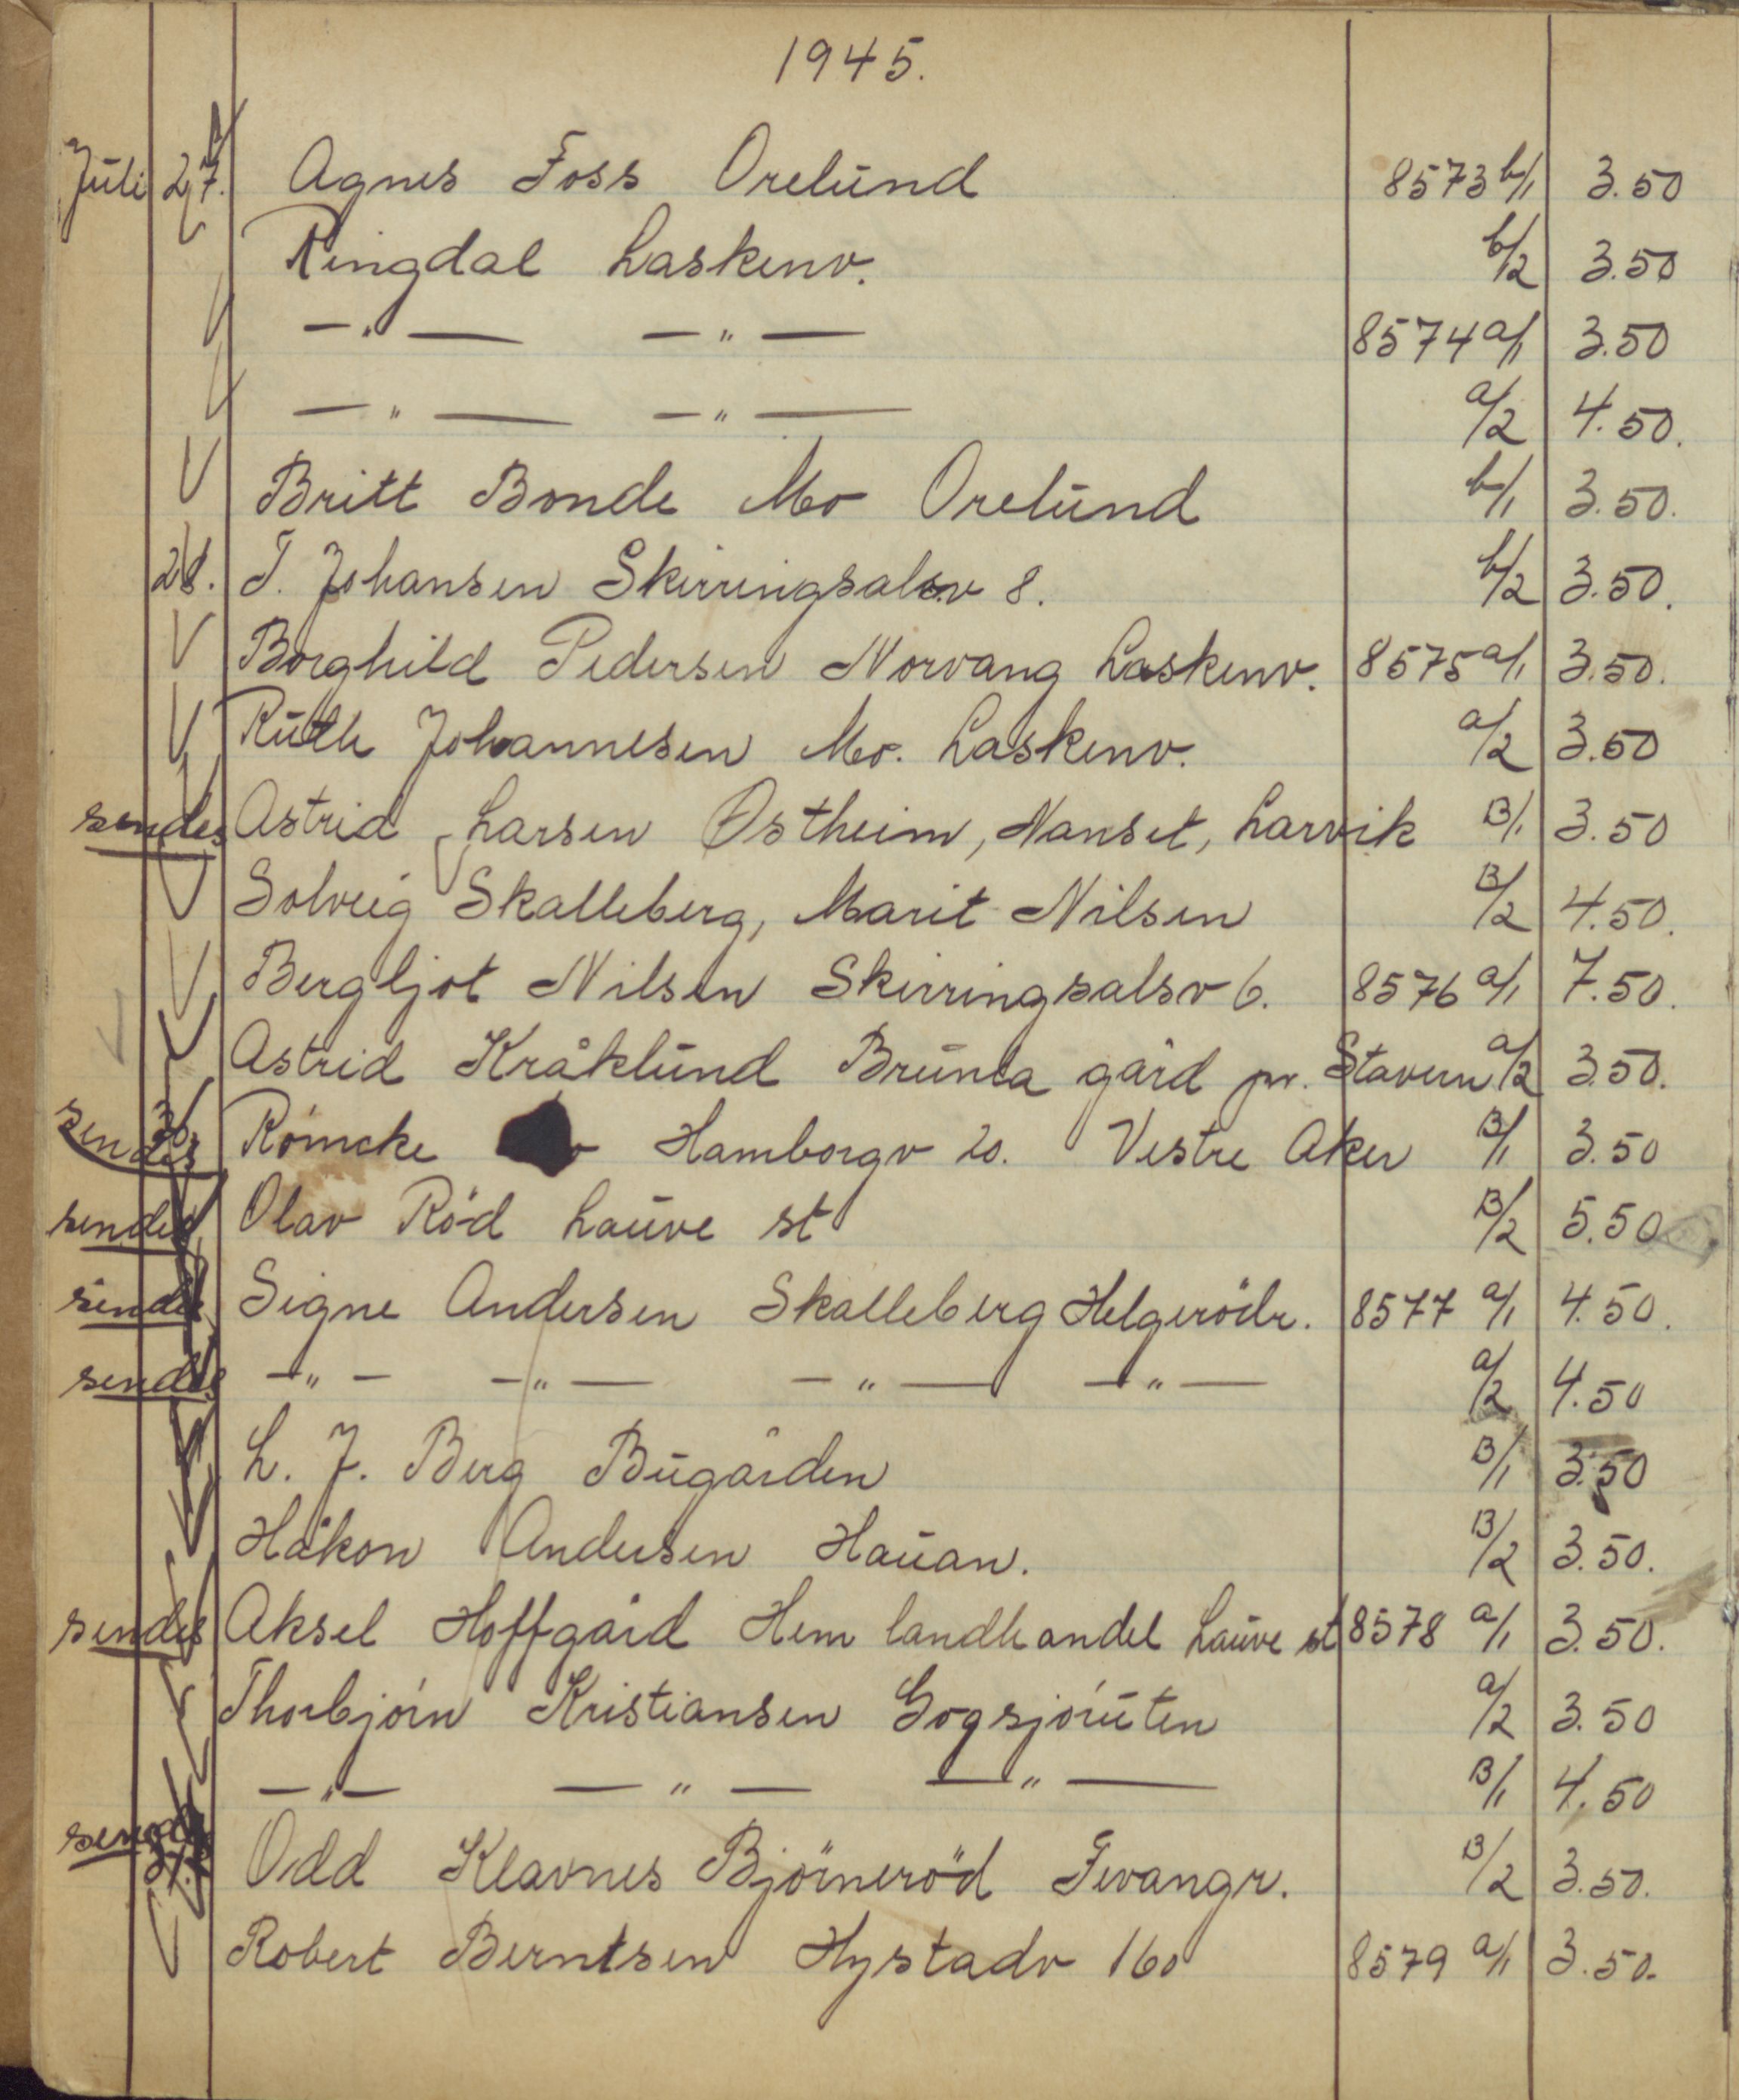 1945.
Juli 27. Agnes Foss Orelund 8573 b/1 3.50
Ringdal Laskenv. b/2 3.50
—"— —"— 8574 a/1 3.50
—"— —"— a/2 4.50.
Britt Bonde Mo Orelund b/1 3.50.
28. T. Johansen Skirringsalsv 8. b/2 3.50.
Borghild Pedersen Norvang Laskenv. 8575 a/1 3.50.
Ruth Johannesen Mo. Laskenv. a/2 3.50
sendes Astrid Larsen Østheim, Nanset, Larvik B/1 3.50
Solveig Skalleberg, Marit Nilsen B/2 4.50.
Bergljot Nilsen Skirringsalsv 6. 8576 a/1 7.50.
Astrid Kråklund Brunla gård pr. Stavern a/2 3.50.
sendes 30. Römcke Hamborgv 20. Vestre Aker B/1 3.50
sendes Olav Röd Lauve st B/2 5.50
sendes Signe Andersen Skalleberg Helgerödr. 8577 a/1 4.50.
sendes —"— —"— —"— —"— a/2 4.50
L. J. Berg Bugården B/1 3.50
Håkon Andersen Hauan. B/2 3.50.
sendes Aksel Hoffgård Hem landhandel Lauve st 8578 a/1 3.50.
Thorbjörn Kristiansen Gogsjöruten a/2 3.50
—"— —"— —"— B/1 4.50
sendes 31. Odd Klavnes Björneröd Fevangr. B/2 3.50.
Robert Berntsen Hystadv 160 8579 a/1 3.50.